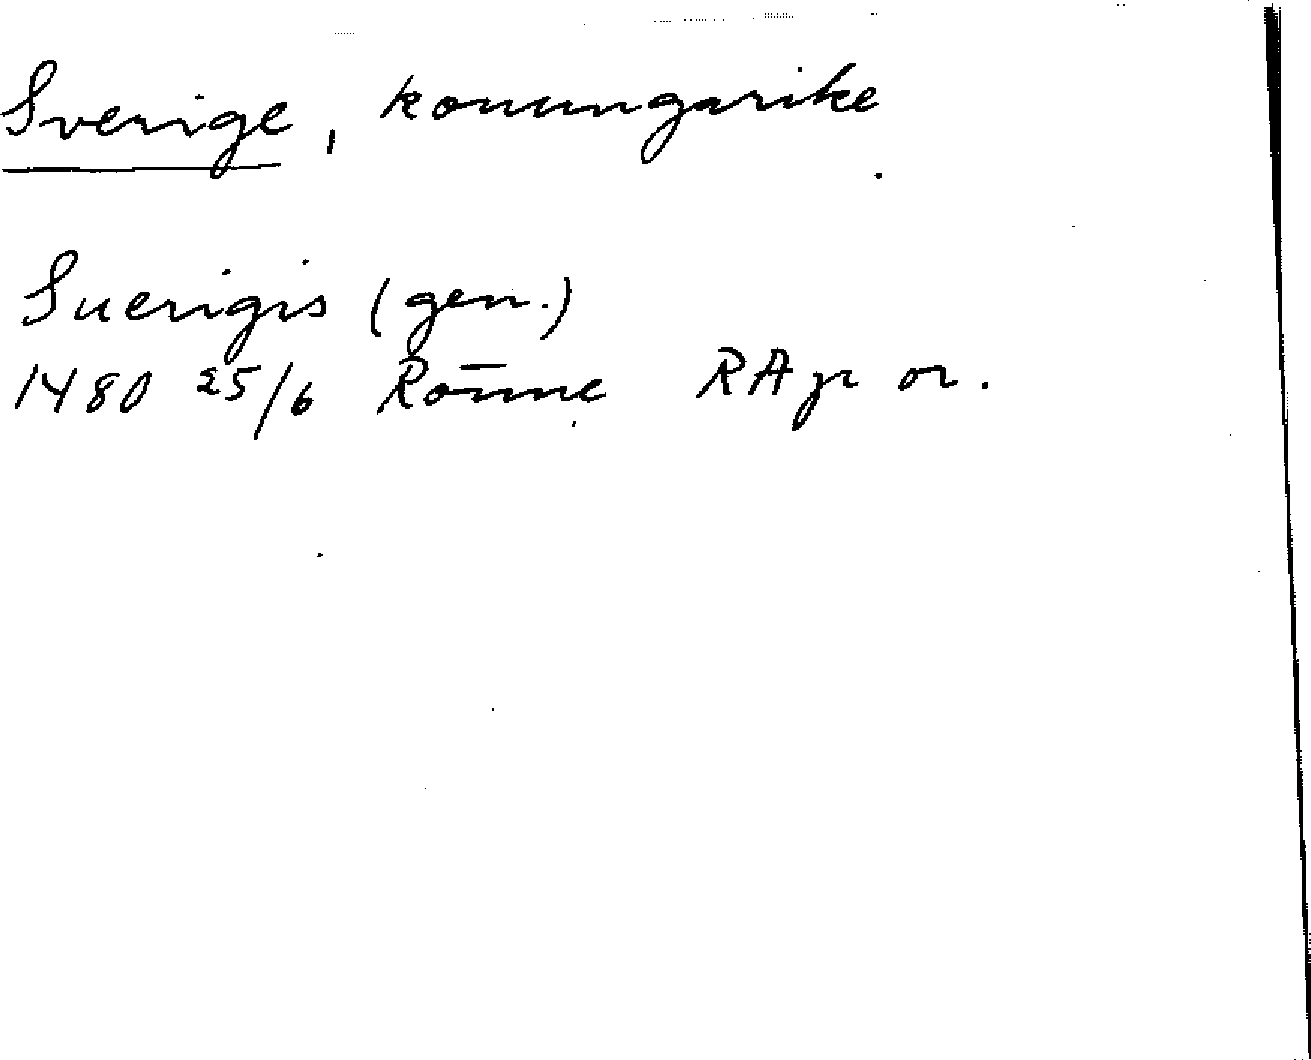 Sverige, konungarike
Suerigis (gen.)
1480 25/6 RAp or.